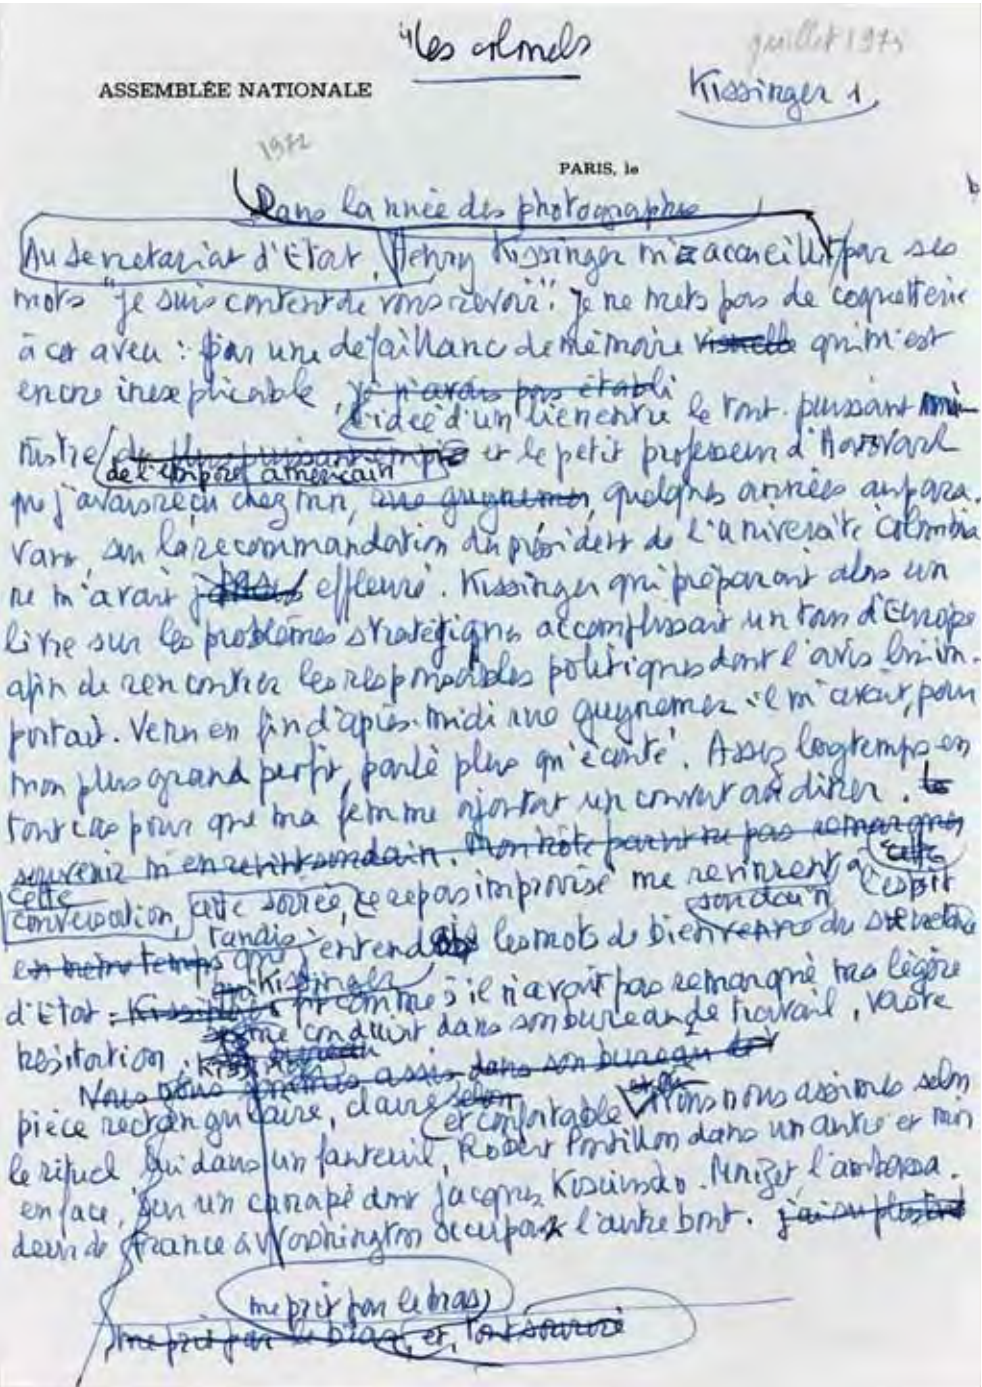 "Les colonels
juillet 1975
ASSEMBLÉE NATIONALE
Kissinger 1
1972
PARIS, le
Dans la ruée des photographes
Au Secretariat d'Etat, Henry Kissinger m'a accueilli par ses
mots "je suis content de vous revoir". Je ne mets pas de coquetterie
à cet aveu : par une defaillance de mémoire visuelle qui m'est
encore inexplicable, je n'avais pas établi
l'idée d'un lien entre le tout-puissant mi-
nistre
de l'Empire américain et le petit professeur d'Harvard
que j'avais reçu chez moi, rue guynemer, quelques années aupara-
vant, sur la recommandation du président de l'université Columbia
ne m'avait jamais effleuré. Kissinger qui préparait alors un
livre sur les problèmes stratégiques accomplissait un tour d'Europe
afin de rencontrer les responsables politiques dont l'avis lui im-
portait. Venu en fin d'après-midi rue guynemer il m'avait, pour
mon plus grand profit, parlé plus qu'écouté. Assez longtemps en
tout cas pour que ma femme ajoutât un couvert au dîner. Le
souvenir m'en revint soudain. Mon hôte parut ne pas remarquer
Cette
cette
conversation, cette soirée, ce repas improvisé me revinrent à l'esprit
soudain
tandis
en même temps que j'entendais les mots de bienvenue du secrétaire
Kissinger
d'Etat. Kissinger fit comme s'il n'avait pas remarqué ma légère
me conduisit dans son bureau de travail, vaste
hésitation.
Nous nous sommes assis dans son bureau
pièce rectangulaire, claire selon
et confortable. Nous nous assîmes selon
le rituel, lui dans un fauteuil, Robert Pontillon dans un autre et moi
en face, sur un canapé dont Jacques Kosciusko-Morizet l'ambassa-
deur de France à Washington occupait l'autre bout. j'ai su plus
me prit par le bras,
me prit par le bras, et, tout sourire